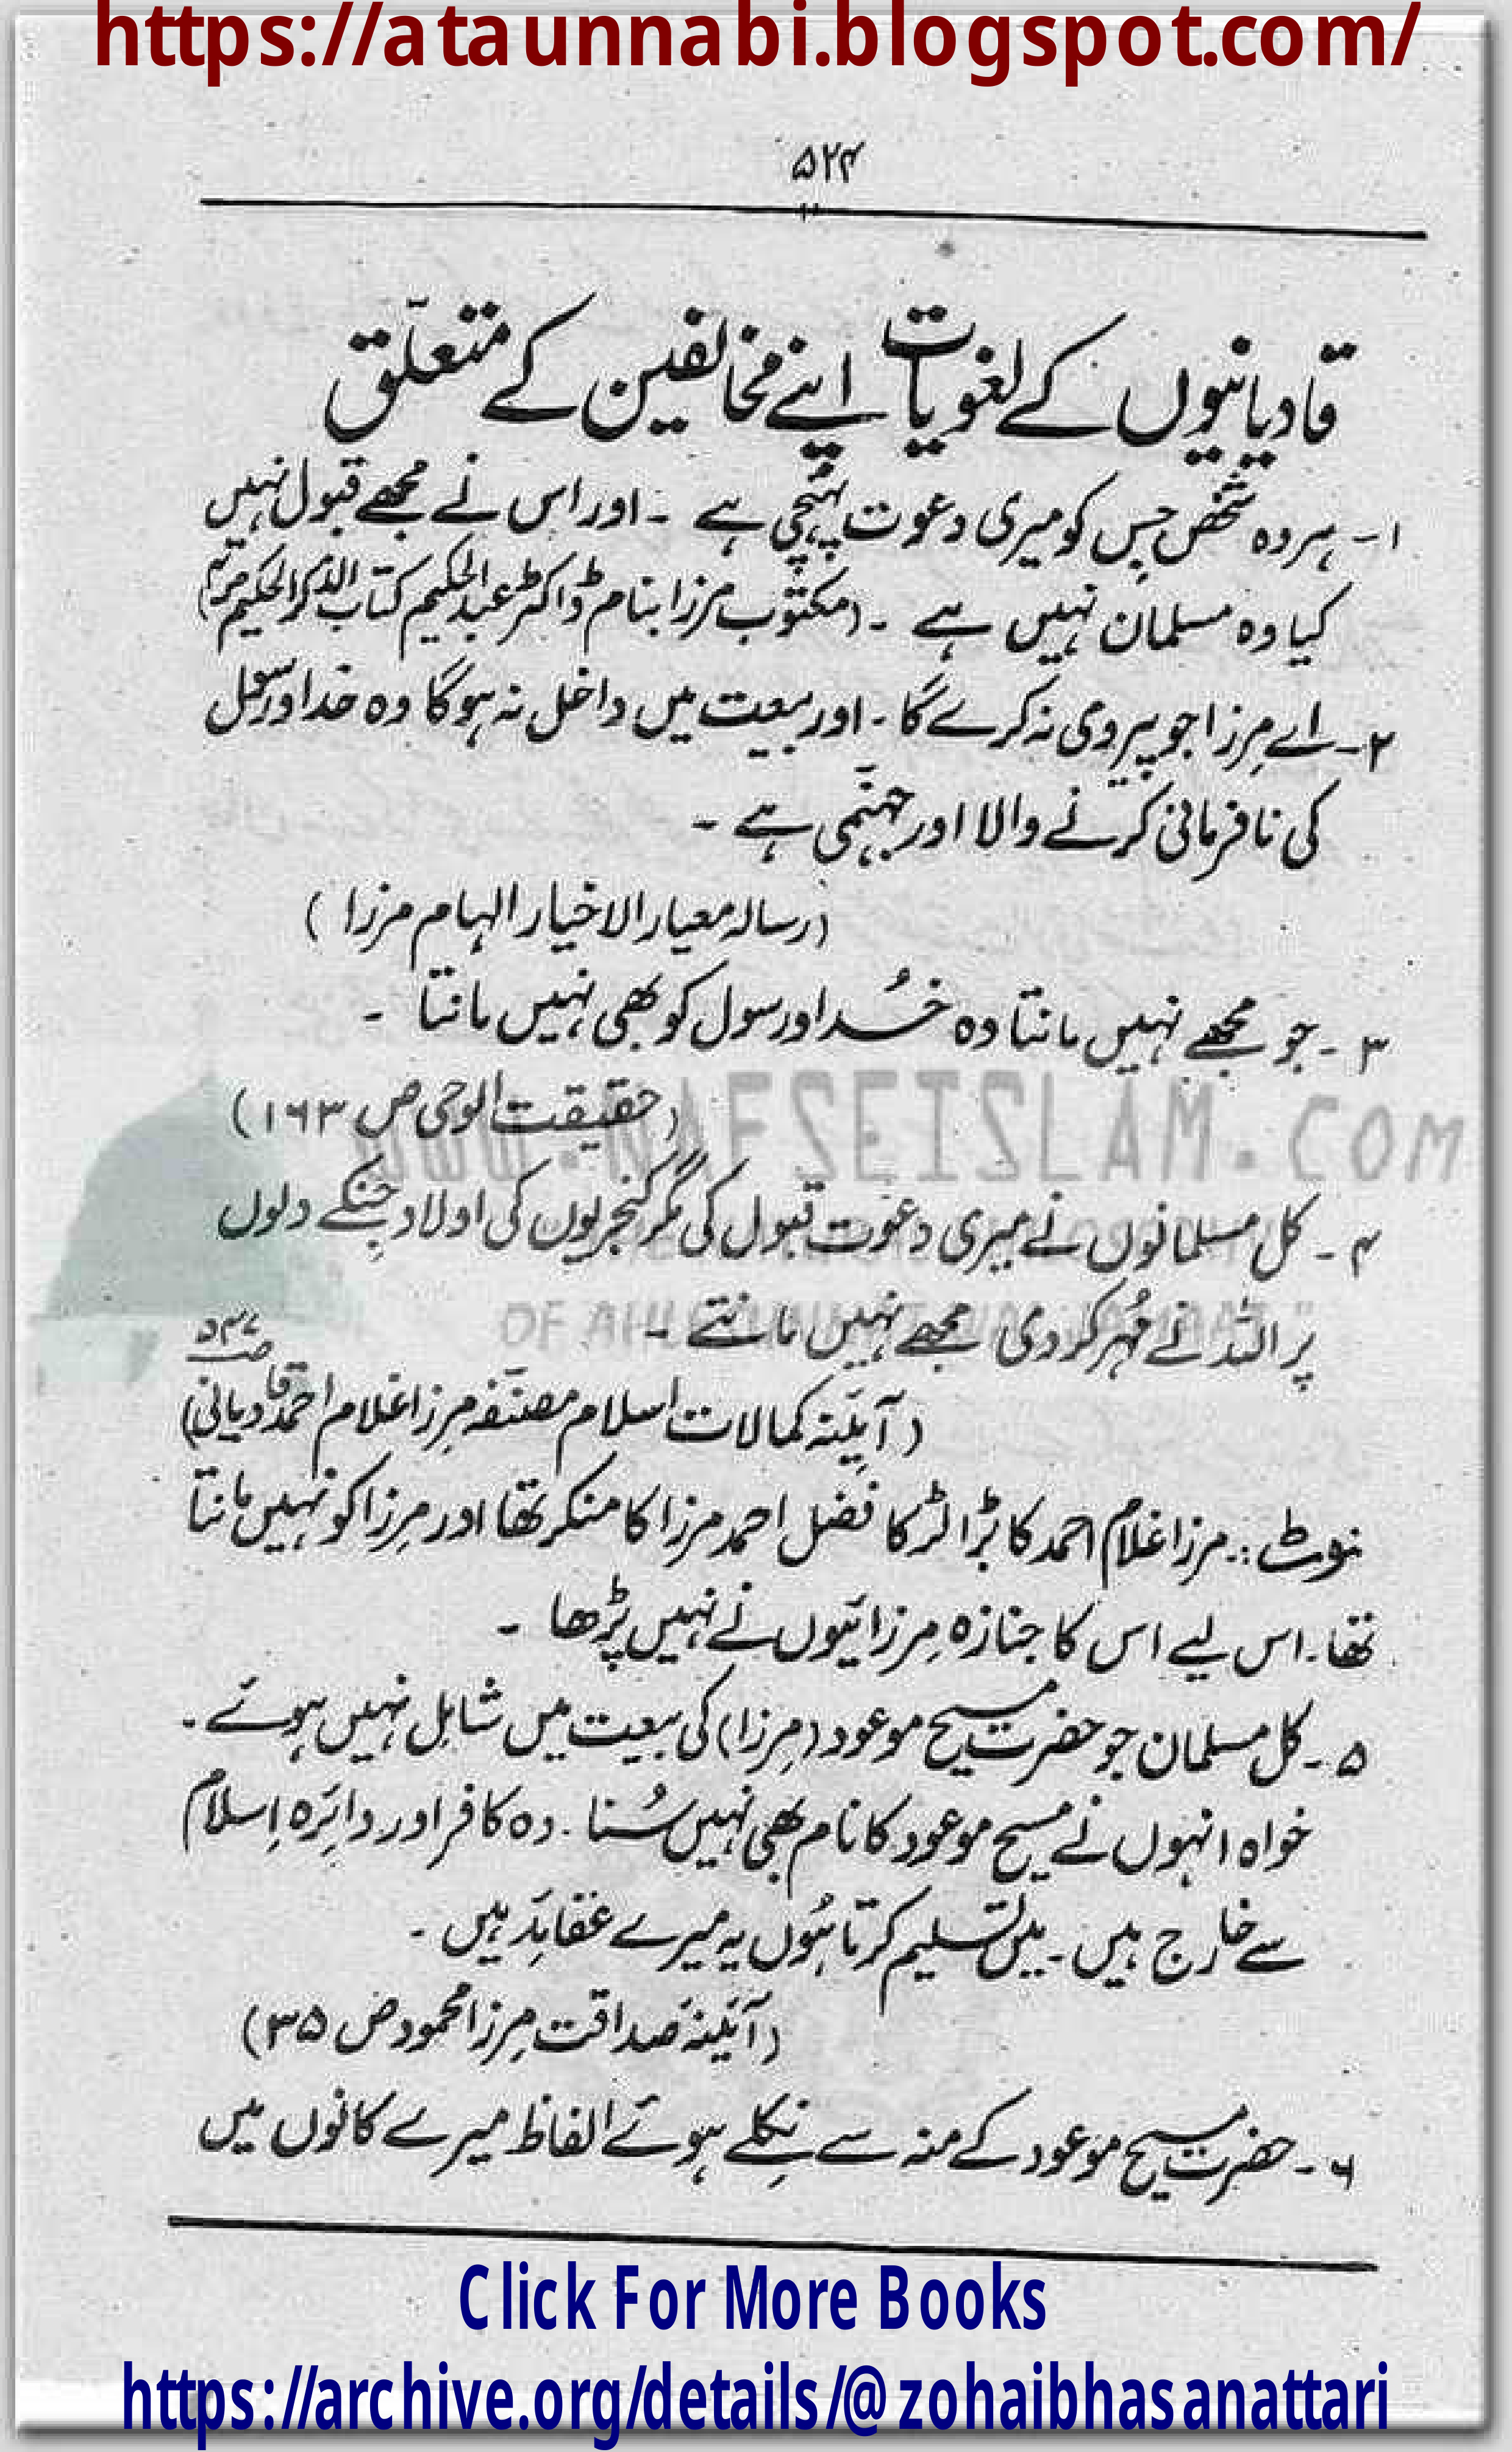 https://ataunnabi.blogspot.com/
۵۲۴
قادیانیوں کے لغویات اپنے مخالفین کے متعلّق
۱- ہر وہ شخص جس کو میری دعوت پہنچی ہے ۔ اور اس نے مجھے قبول نہیں
کیا وہ مسلمان نہیں ہے ۔ (مکتوب مرزا بنام ڈاکٹر عبدالحکیم کتاب الذکر الحکیم
۲- اے مرزا جو پیروی نہ کرے گا ۔ اور بیعت میں داخل نہ ہوگا وہ خدا و رسول
کی نافرمانی کرنے والا اور جہنّمی ہے ۔
(رسالہ معیار الاخیار الہام مرزا )
۳ - جو مجھے نہیں مانتا وہ خُدا اور رسول کو بھی نہیں مانتا ۔
(حقیقت الوحی ص ۱۶۳)
WWW.NAFSEISLAM.COM
۴ - کل مسلمانوں نے میری دعوت قبول کی مگر کنجریوں کی اولاد جنکے دلوں
پر اللہ نے مُہر کر دی مجھے نہیں مانتے ۔
ص ۵۴۷
(آئینہ کمالات اسلام مصنّفہ مرزا غلام احمد قادیانی)
نوٹ :۔ مرزا غلام احمد کا بڑا لڑکا فضل احمد مرزا کا منکر تھا اور مرزا کو نہیں مانتا
تھا ۔ اس لیے اس کا جنازہ مرزائیوں نے نہیں پڑھا ۔
۵ - کل مسلمان جو حضرت مسیح موعود (مرزا) کی بیعت میں شامل نہیں ہوئے ۔
خواہ انہوں نے مسیح موعود کا نام بھی نہیں سُنا ۔ وہ کافر اور دائرہ اِسلام
سے خارج ہیں ۔ میں تسلیم کرتا ہُوں یہ میرے عقائد ہیں ۔
(آئینہ صداقت مرزا محمود ص ۳۵)
۶ - حضرت مسیح موعود کے منہ سے نکلے ہوئے الفاظ میرے کانوں میں
Click For More Books
https://archive.org/details/@zohaibhasanattari